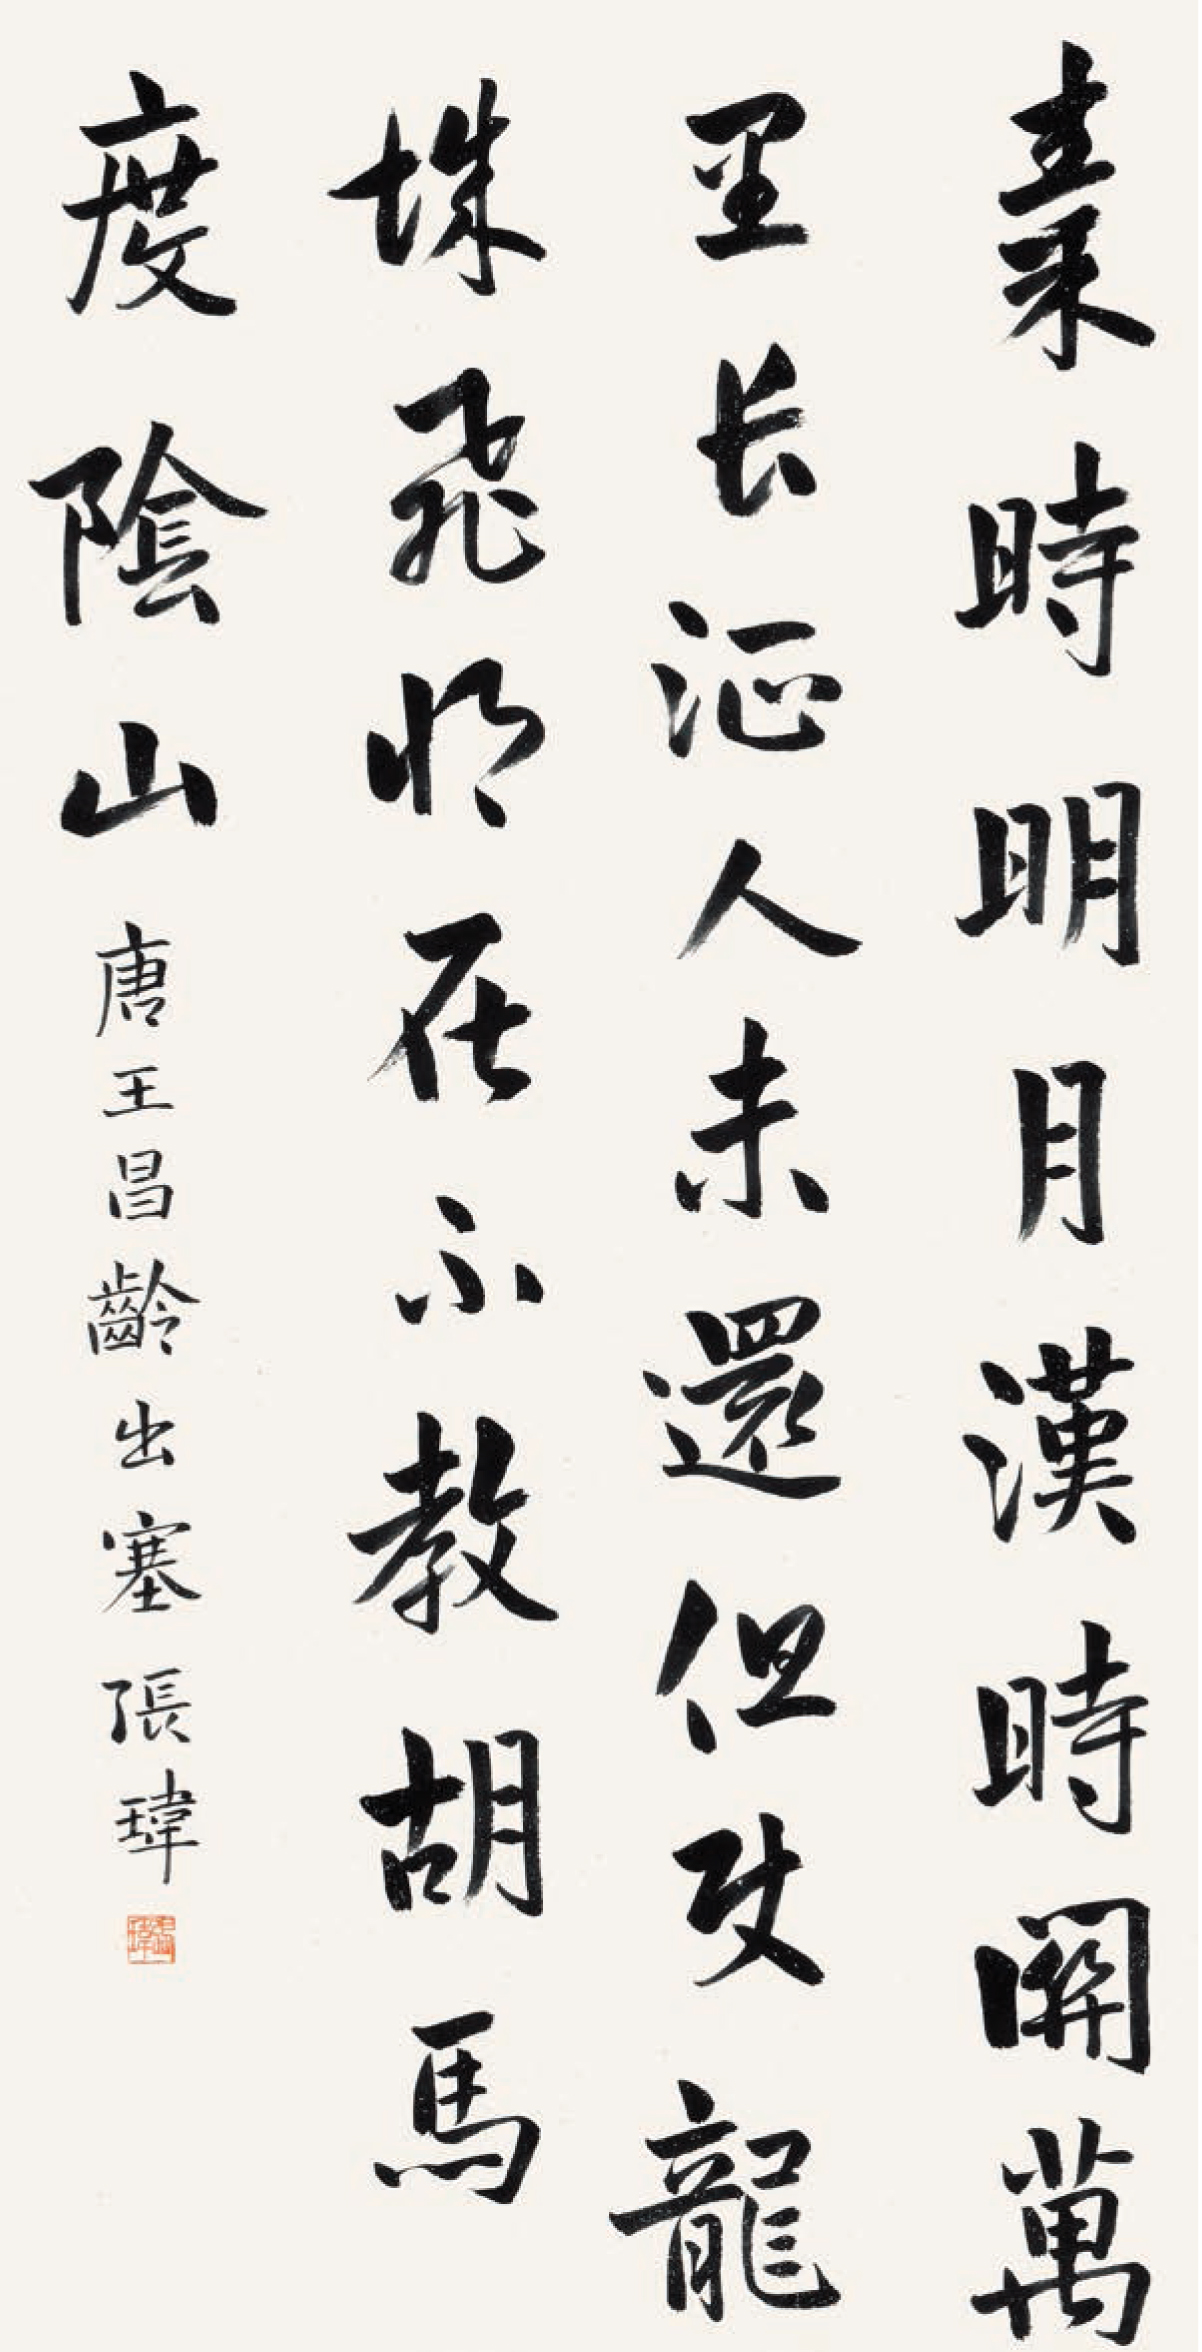 秦時明月漢時關萬
里长征人未還但使龍
城飛将在不教胡馬
度陰山 唐王昌齡出塞 張瑋